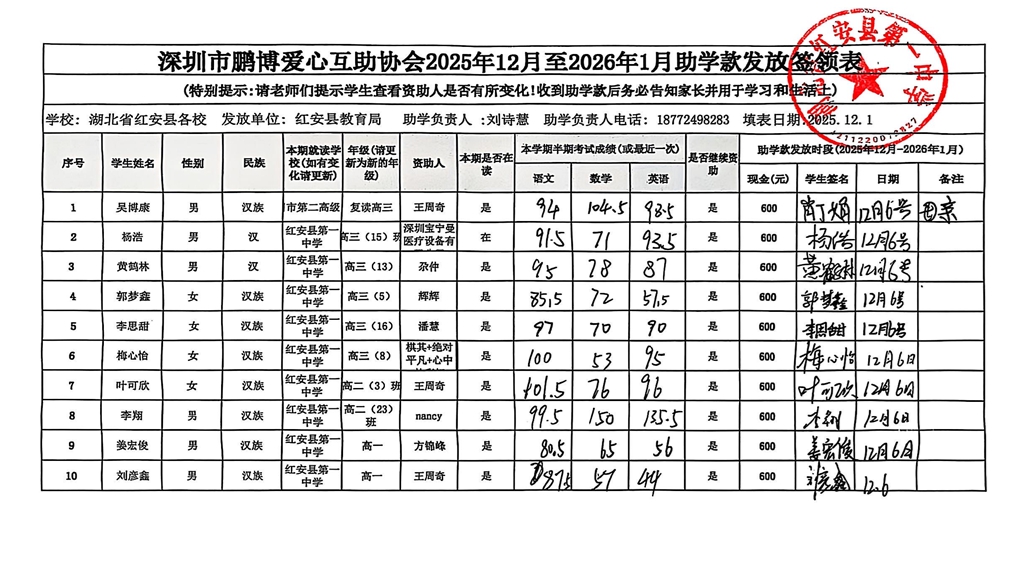 深圳市鹏博爱心互助协会2025年12月至2026年1月助学款发放签领表
(特别提示:请老师们提示学生查看资助人是否有所变化!收到助学款后务必告知家长并用于学习和生活上)
学校: 湖北省红安县各校 发放单位: 红安县教育局 助学负责人:刘诗慧 助学负责人电话: 18772498283 填表日期:2025.12.1
序号 学生姓名 性别 民族 本期就读学校(如有变化请更新) 年级(请更新为新的年级) 资助人 本期是否在读 本学期半期考试成绩(或最近一次) 是否继续资助 助学款发放时段(2025年12月-2026年1月)
语文 数学 英语 现金(元) 学生签名 日期 备注
1 吴博康 男 汉族 市第二高级 复读高三 王周奇 是 94 104.5 98.5 是 600 12月6号 母亲
2 杨浩 男 汉 红安县第一中学 高三(15)班 深圳宝宁曼医疗设备有 在 91.5 71 93.5 是 600 杨浩 12月6号
3 黄鹤林 男 汉 红安县第一中学 高三(13) 尕仲 是 95 78 87 是 600 黄鹤林 12月6号
4 郭梦鑫 女 汉族 红安县第一中学 高三(5) 辉辉 是 85.5 72 57.5 是 600 郭梦鑫 12月6号
5 李思甜 女 汉族 红安县第一中学 高三(16) 潘慧 是 97 70 90 是 600 李思甜 12月6号
6 梅心怡 女 汉族 红安县第一中学 高三(8) 棋其+绝对平凡+心中 是 100 53 95 是 600 梅心怡 12月6日
7 叶可欣 女 汉族 红安县第一中学 高二(3)班 王周奇 是 101.5 76 96 是 600 叶可欣 12月6日
8 李翔 男 汉族 红安县第一中学 高二(23)班 nancy 是 99.5 150 135.5 是 600 李翔 12月6日
9 姜宏俊 男 汉族 红安县第一中学 高一 方锦峰 是 80.5 65 56 是 600 姜宏俊 12月6日
10 刘彦鑫 男 汉族 红安县第一中学 高一 王周奇 是 87.5 57 44 是 600 刘彦鑫 12.6